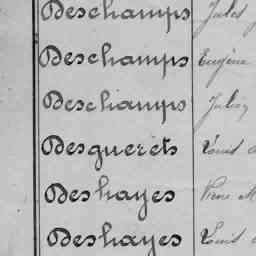 Deschamps Jules
Deschamps Eugène
Deschamps Julien
Desguerêts Louis
Deshayes Pierre M
Deshayes Louis